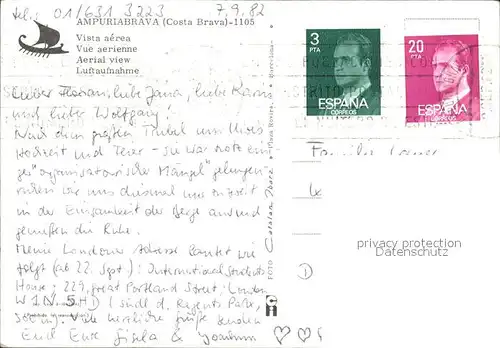 tel.: 01/631 3223 7.9.82
AMPURIABRAVA (Costa Brava)-1105
Vista aérea
Vue aerienne
Aerial view
Luftaufnahme
3
PTA
ESPAÑA
CORREOS
20
PTA
ESPAÑA
CORREOS
Lieber Florian, liebe Jana, liebe Karin
und lieber Wolfgang,
Nach dem großen Trubel um
Hochzeit und Feier - sie war trotz
"organisatorischer Mängel" gelungen
wir uns diesmal zur Zeit
in der Einsamkeit der Berge aus und
genießen die Ruhe.
Meine Londoner Adresse lautet wie
folgt (ab 22. Sept): International Students
House; 229, Great Portland Street; London
W1N 5HD (südl d. Regents Park,
Viele herzliche Grüße senden
Euch Eure Gisela & Joachim
Familie
D
FOTO
privacy protection
watermark